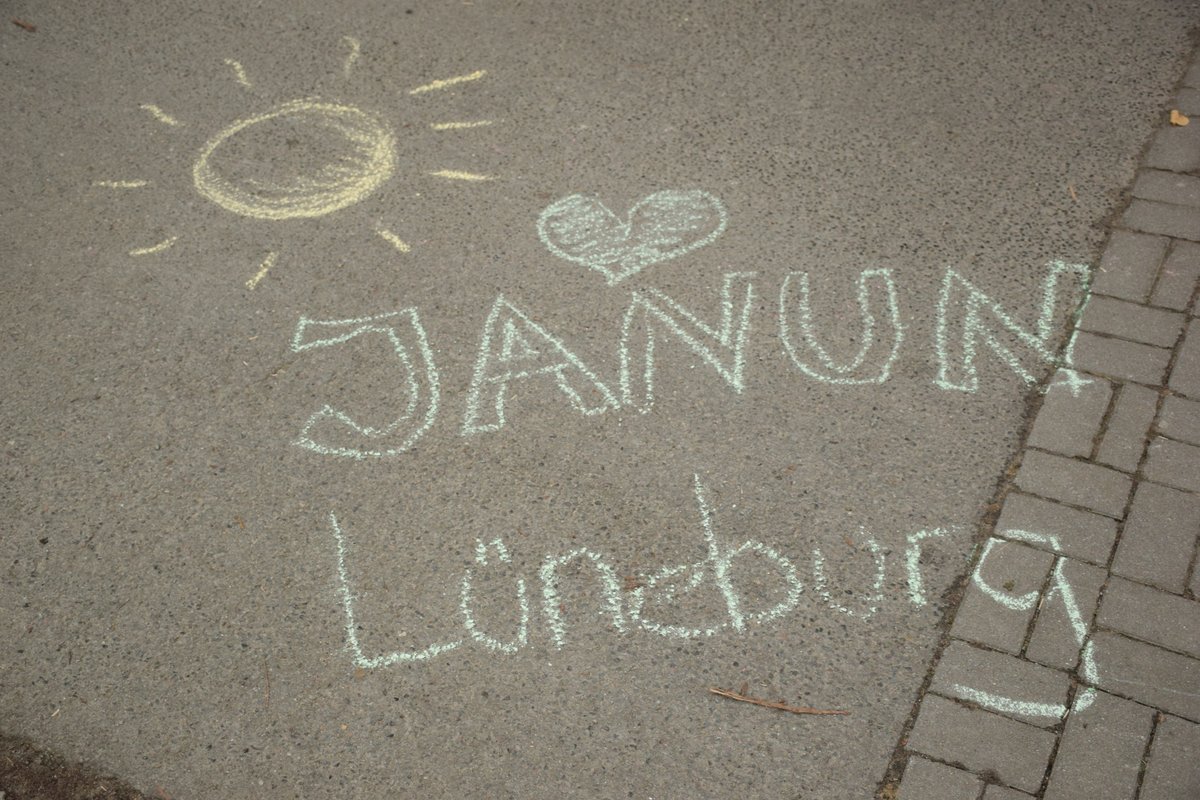 JANUN
Lüneburg